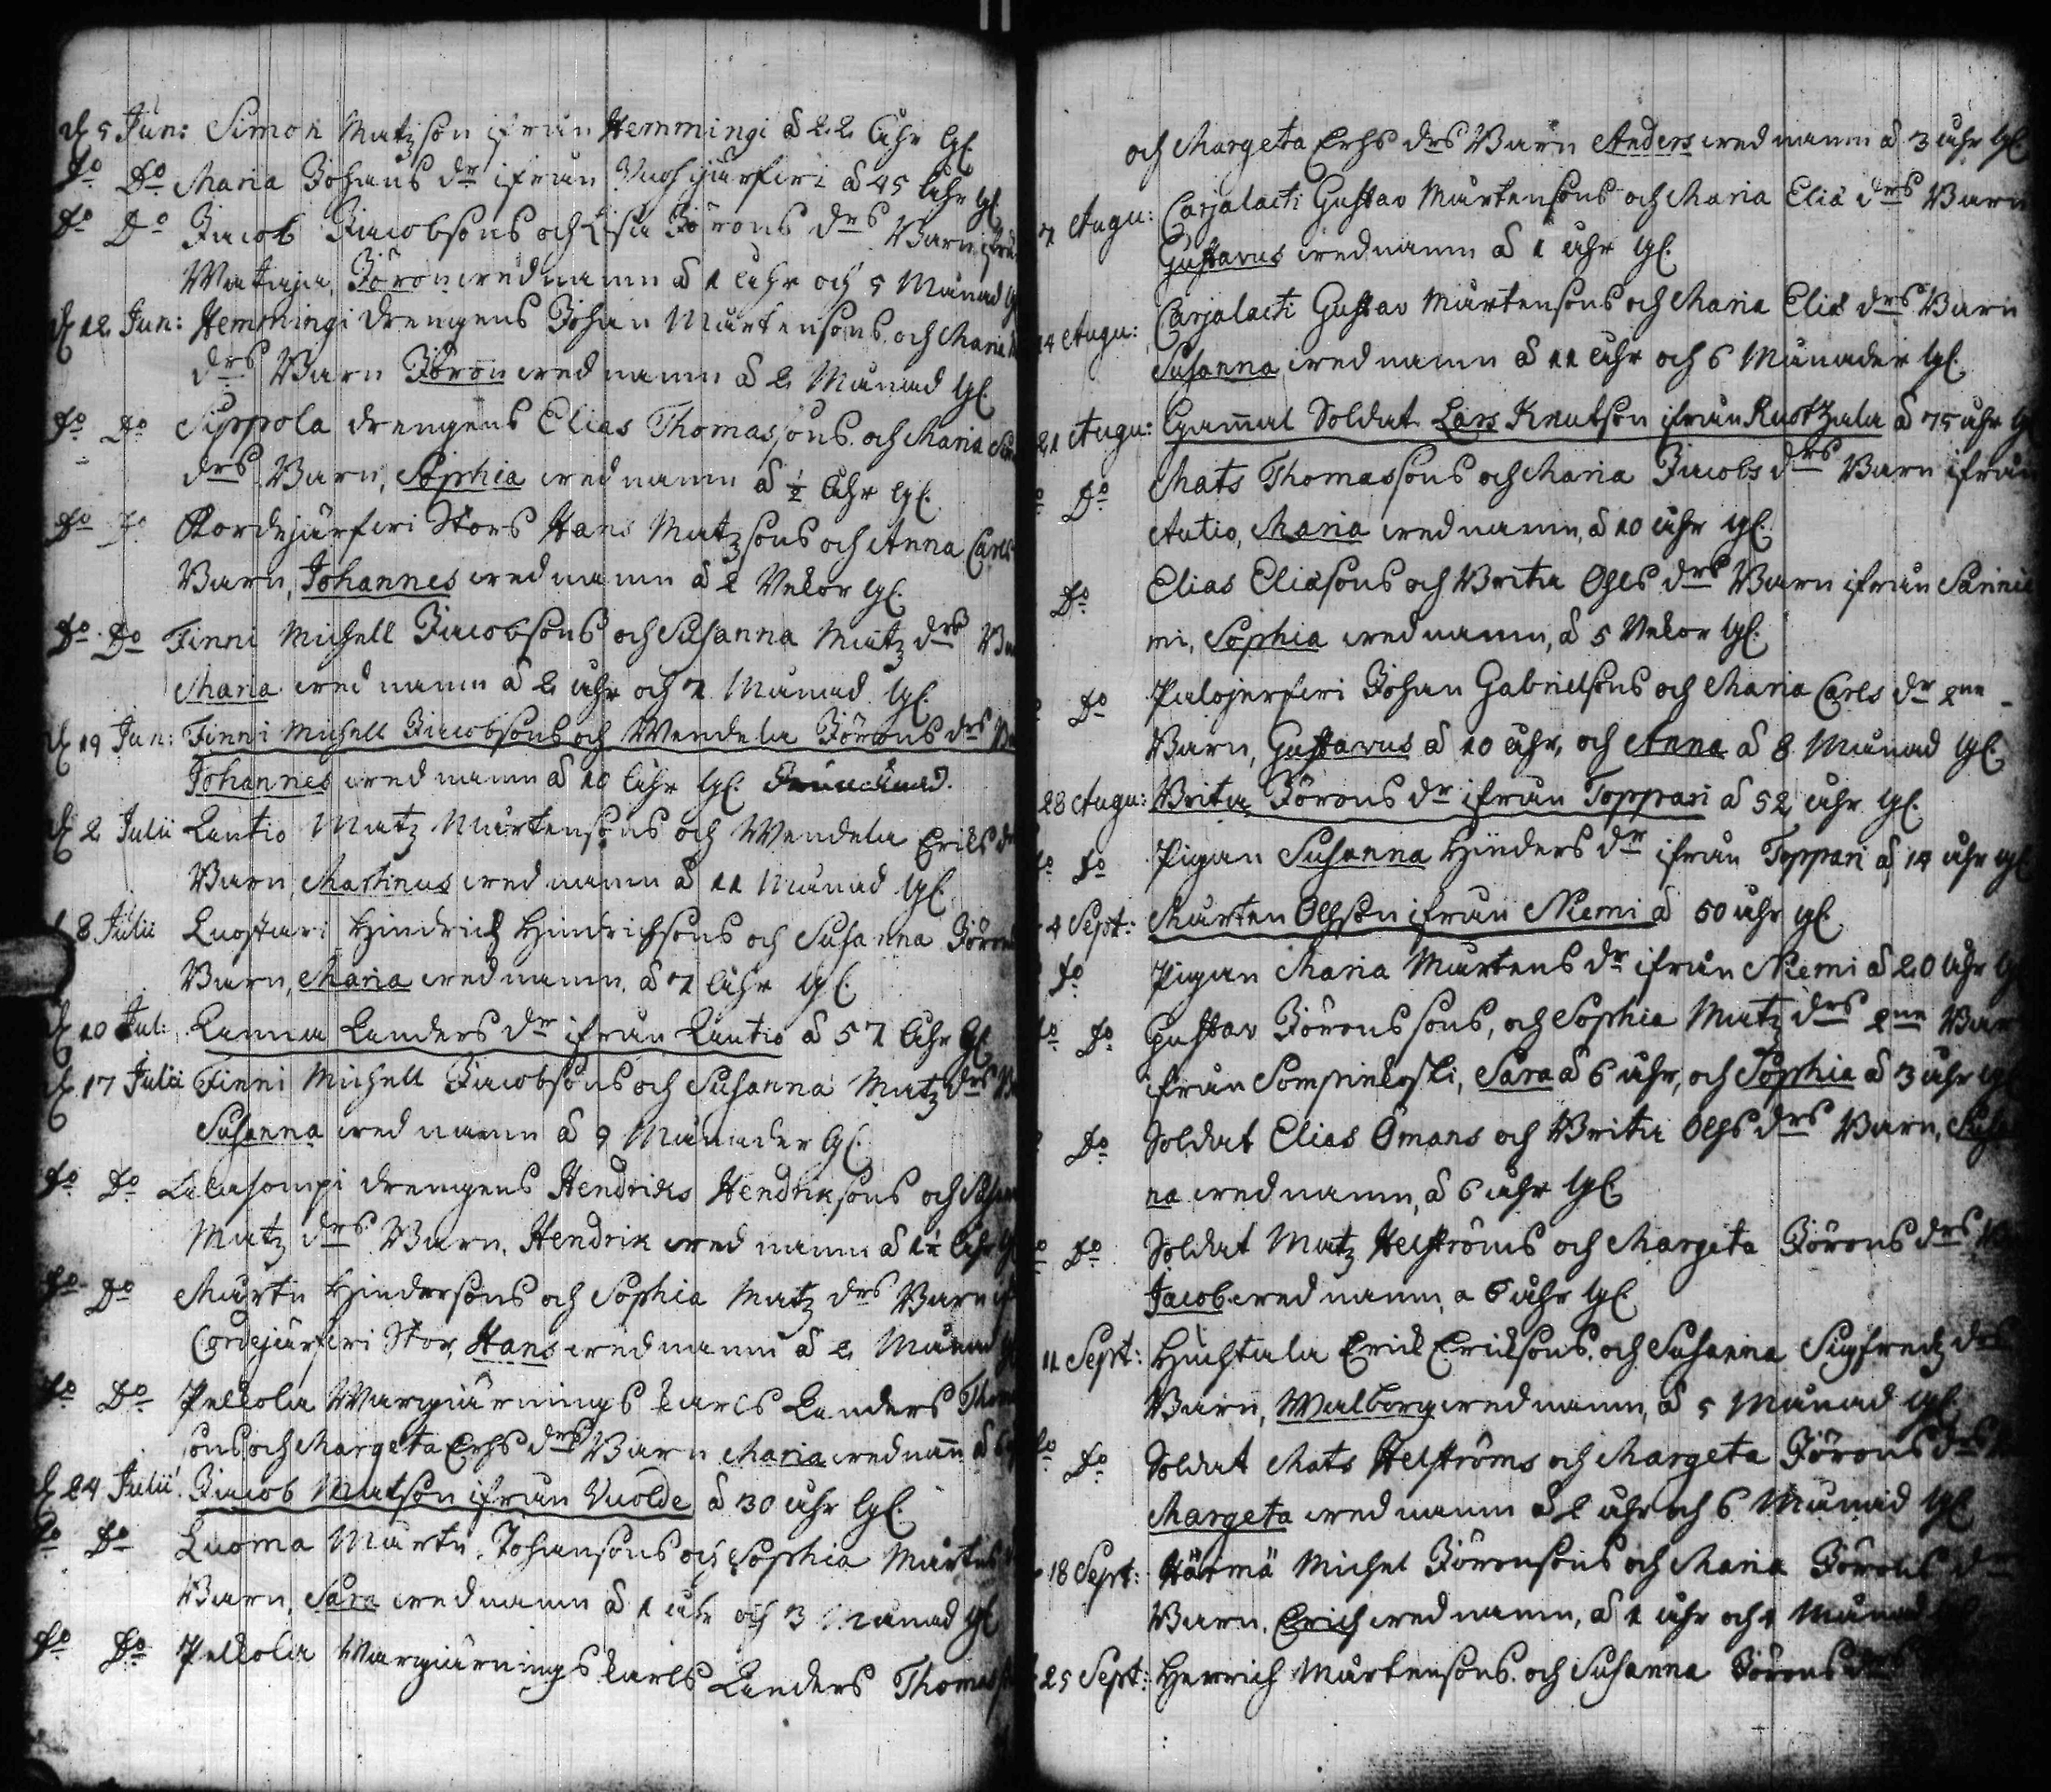 d 5 Jun: Simon Matzson ifrån Hemmingi å 22 Åhr lgf.
Do Do Maria Johans dr ifrån å 45 Åhr lgf.
Do Do Jacob Jacobsons och Lisa Jörons drs Barn ifrå
Wataja, Jöron wed namn å 1 åhr och 5 Månad lgf
d 12 Jun: Hemmingi drengens Johan Mårtensons och Maria
drs Barn Jöron wed namn å 2 Månad lgf.
Do Do Sippola drengens Elias Thomassons och Maria
drs Barn, Sophia wed namn å ½ Åhr lgf.
Do Do Kordejärferi Stors Hans Matzsons och Anna Carls
Barn, Johannes wed namn å 2 Vekor lgf.
Do Do Finni Michell Jacobsons och Susanna Matz drs Ba
Maria wed namn å 2 åhr och 7 Månad lgf.
d 19 Jun: Finni Michell Jacobsons och Wendela Jörons drs Ba
Johannes wed namn å 10 Åhr lgf.
d 2 Julii Lautio Matz Mårtensons och Wendela Eriks dr
Barn, Martinus wed namn å 11 Månad lgf.
d 8 Julii Luostari Hindrich Hindrichsons och Susanna Jörons
Barn, Maria wed namn å 7 Åhr lgf.
d 10 Jul: Lanna Landers dr ifrån Lautio å 57 Åhr lgf.
d 17 Julii Finni Michell Jacobsons och Susanna Matz drs Ba
Susanna wed namn å 9 Månader lgf.
Do Do Lalasompi drengens Hendriks Hendriksons och Susan
Matz drs Barn, Hendrik wed namn å Åhr lgf
Do Do Mårtn Hindersons och Sophia Matz drs Barn if
Cordejärferi Stor, Hans wed namn å 2 Månad lgf
Do Do Pekkola Wargiärnings karls Landers Thoma
sons och Margeta Erhs drs Barn Maria wed namn å
d 24 Julii: Jacob Matson ifrån Vuolde å 30 åhr lgf.
Do Do Luoma Mårtn Johansons och Sophia Mårtens
Barn, Sara wed namn å 1 åhr och 3 Månad lgf
Do Do Pekkola Wargiärnings karls Landers Thomas
och Margeta Erhs drs Barn Anders wed namn å 3 åhr lgf
7 Augu: Carjalacti Gustav Mårtensons och Maria Eliæ drs Barn
Gustavus wed namn å 1 åhr lgf.
14 Augu: Carjalacti Gustav Mårtensons och Maria Eliæ drs Barn
Susanna wed namn å 11 åhr och 6 Månader lgf.
21 Augu: Gammal Soldat Lars Knutson ifrån Rustzala å 75 åhr lgf
Do Mats Thomassons och Maria Jacobs drs Barn ifrån
Autio, Maria wed namn, å 10 åhr lgf.
Do Elias Eliæsons och Brita Ohls drs Barn ifrån Sarinie
mi, Sophia wed namn, å 5 Vekor lgf.
Do Palojerferi Johan Gabrielsons och Maria Carls dr 2ne
Barn, Gustavus å 10 åhr, och Anna å 8 Månad lgf.
28 Augu: Brita Jörons dr ifrån Toppari å 52 åhr lgf.
Do Do Pigan Susanna Hinders dr ifrån Toppari å 14 åhr lgf
4 Sept: Mårten Olhson ifrån Niemi å 50 åhr lgf.
Do Pigan Maria Mårtens dr ifrån Niemi å 20 Åhr lgf
Do Do Gustav Jöronssons, och Sophia Matz drs 2ne Bar
ifrån Sompinkoski, Sara å 6 åhr, och Sophia å 3 åhr lgf
Do Soldat Elias Ömans och Brita Olhs drs Barn, Susan
na wed namn, å 6 åhr lgf.
Do Do Soldat Matz Helströms och Margeta Jörons drs Ba
Jacob wed namn, a 6 åhr lgf
11 Sept: Huchtala Erik Eriksons och Susanna Sigfredz drs
Barn, Walborg wed namn, å 5 Månad lgf.
Do Do Soldat Mats Helströms och Margeta Jörons drs Ba
Margeta wed namn å 2 åhr och 6 Månad lgf.
18 Sept: Härmä Michel Jöronsons och Maria Jörons dr
Barn, Erich wed namn, å 1 åhr och 1 Månad
25 Sept: Henrich Mårtensons och Susanna Jörons drs